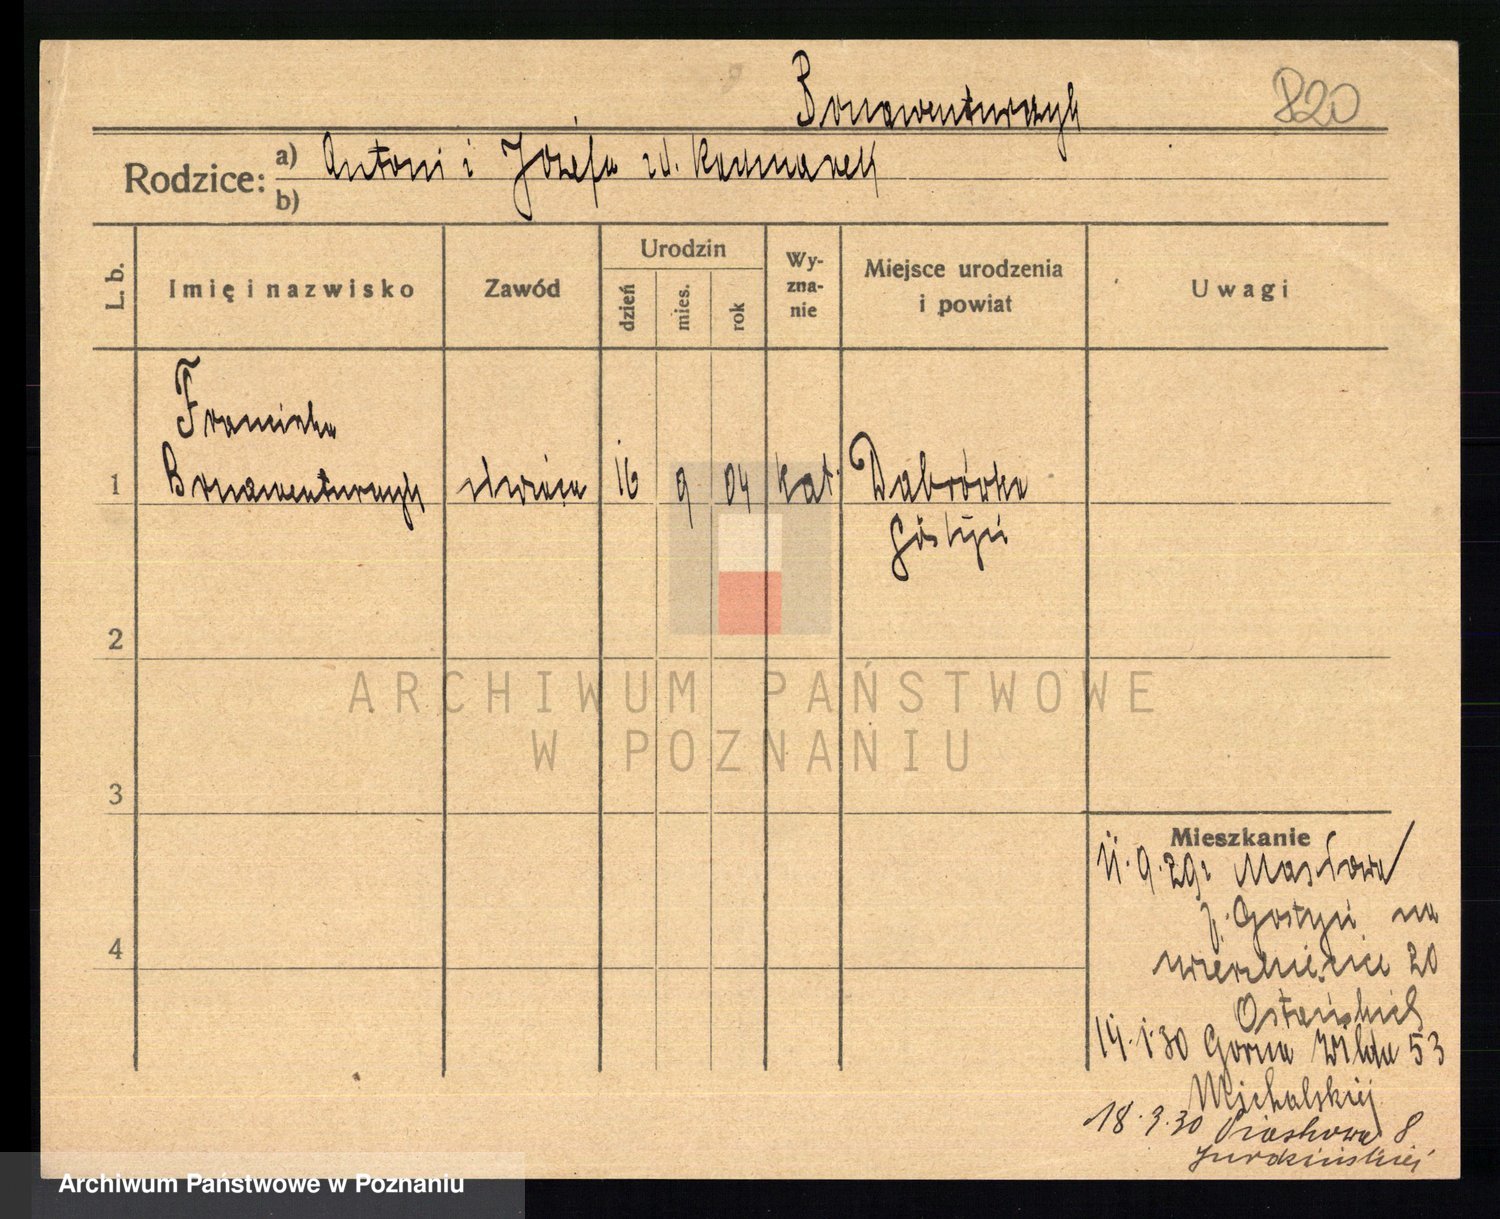 Bonawenturczyk
820
Rodzice:
a) Antoni i Józefa zd. Kaczmarek
b)
L. b.
Imię i nazwisko
Zawód
Urodzin
dzień
mies.
rok
Wy-
zna-
nie
Miejsce urodzenia
i powiat
Uwagi
Franciszka
1 Bonawenturczyk służąca 16 9 04 kat. Dąbrówka
Gostyń
2
ARCHIWUM PAŃSTWOWE
W POZNANIU
3
Mieszkanie
11.9.29r
Gostyń na
4
20
14.1.30 Górna Wilda 53
Michalskiej
18.3.30 Piaskowa 8
Archiwum Państwowe w Poznaniu